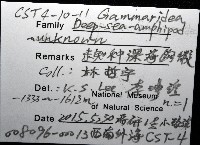 CST4-10-11 Gammaridea
Family Deep-sea-amphipod
unknown
Remarks 未知種深海鉤蝦
Coll.: 林哲宇
Det.: K.S. Lee 李坤瑄
-1333m~-1612m National Museum of Natural Science n=1
Date 2015.5.30
008096-00013 西南外海 CST-4